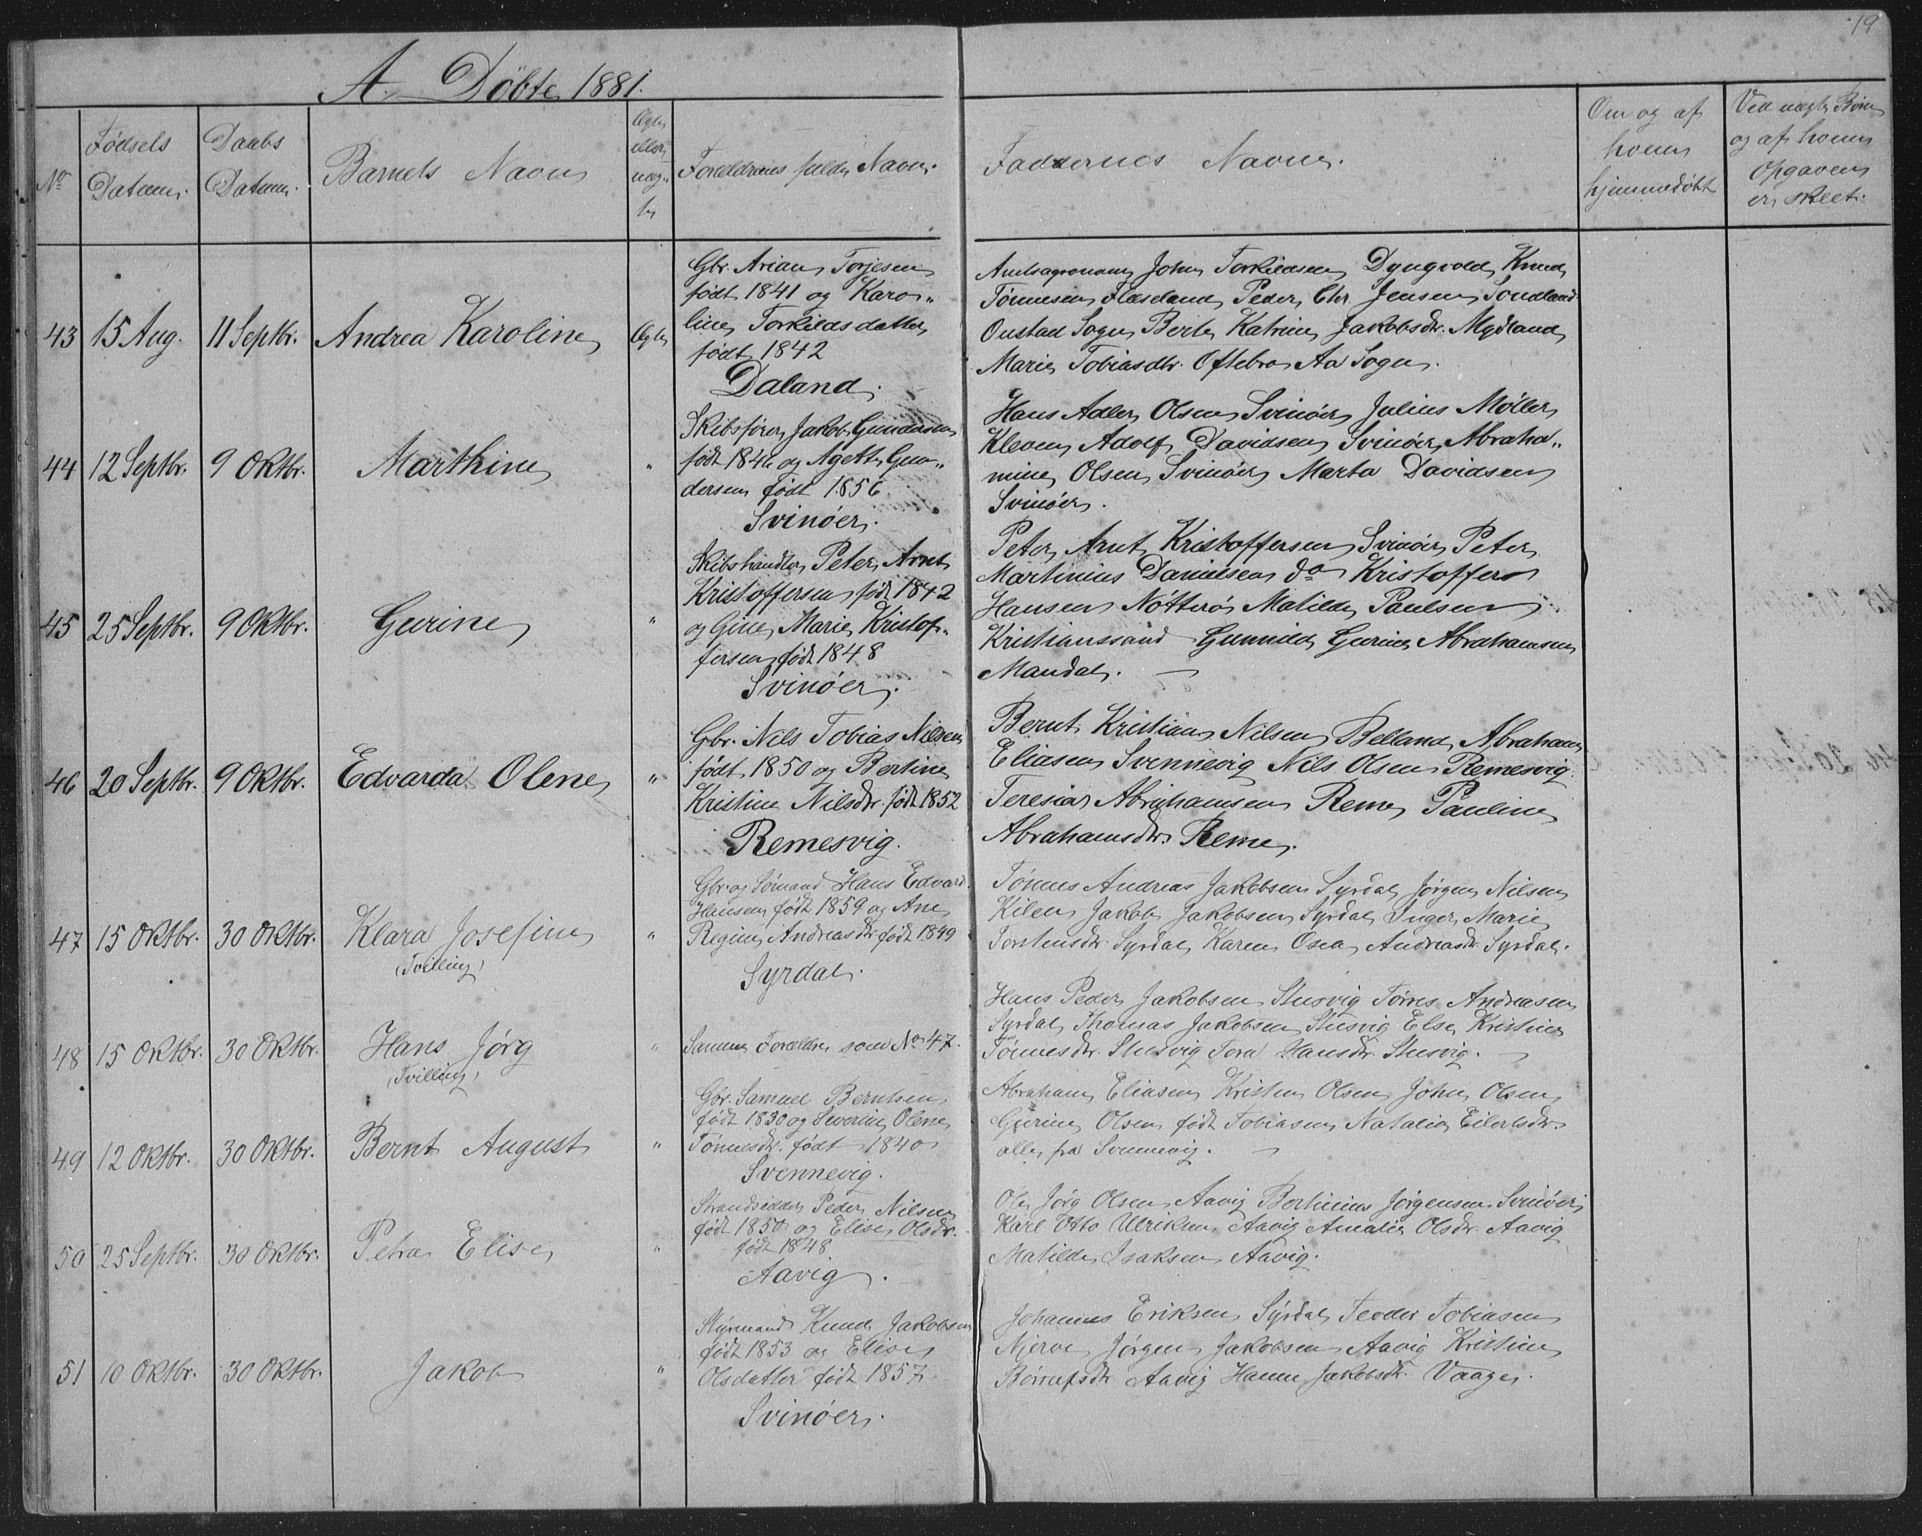 19
A. Döbte 1881.
No
Fødsels Datum.
Daabs Datum.
Barnets Navn
Ægte eller uægte
Forældrenes fulde Navn.
Faddernes Navne.
Om og af hvem hjemmedøbt
Ved uægte Børn og af hvem Opgaven er skeet.
43 15 Aug. 11 Septbr. Andrea Karoline Ægte
Gbr. Arian Torjesen
født 1841 og Karo„
line Torkildsdatter
født 1842
Daland.
Amtsagronom John Torkildsen Dyngvold, Knud
Tønnesen Fløseland Peder Chr. Jensen Sondland
Oustad Sogn Berte Katrine Jakobsdr. Mydland
Marie Tobiasdtr. Oftebro Aa Sogn.
44 12 Septbr. 9 Oktbr. Marthine "
Skibsfører Jakob Gundersen
født 1846 og Agette Gun„
dersen født 1856
Svinöer.
Hans Adler Olsen Svinöer Julius Møller
Kleven Adolf Davidsen Svinöer, Abraha„
mine Olsen Svinöer Marta Davidsen
Svinöer.
45 25 Septbr. 9 Oktbr. Gurine "
Skibshandler Peter Arnt
Kristoffersen født 1842
og Gine Marie Kristof„
fersen født 1848
Svinöer.
Peter Arnt Kristoffersen Svinöer Peter
Martinius Danielsen do Kristoffer
Hansen Nötterö Matilde Paulsen
Kristianssand Gunnild Gurine Abrahamsen
Mandal. —
46 20 Septbr. 9 Oktbr. Edvarda Olene "
Gbr. Nils Tobias Nilsen
født 1850 og Bertine
Kristine Nilsdr. født 1852
Remesvig.
Bernt Kristian Nilsen Belland, Abraham
Eliasen Svennevig Nils Olsen Remesvig.
Teresia Abrahamsen Reme, Pauline
Abrahamsdtr Reme.
47 15 Oktbr. 30 Oktbr. Klara Josefine "
(Tvilling)
Gbr. og Sömand Hans Edvard
Hansen født 1859 og Ane
Regine Andreasdr. født 1849
Syrdal.
Tönnes Andreas Jakobsen Syrdal, Jörgen Nilsen
Kilen Jakob Jakobsen Syrdal Inger Marie
Torstensdr. Syrdal, Karen Osea Andreasdr. Syrdal.
48 15 Oktbr. 30 Oktbr. Hans Jörg "
(Tvilling)
Samme Forældre som No 47.
Hans Peder Jakobsen Stusvig Tönnes Andreasen
Syrdal, Thomas Jakobsen Stusvig Else Kristine
Tönnesdr. Stusvig Tora Hansdr. Stusvig. —
49 12 Oktbr. 30 Oktbr. Bernt August "
Gbr. Samuel Berntsen
født 1830 og Severine Olene
Tönnesdr. født 1840
Svennevig.
Abraham Eliasen Kristen Olsen John Olsen
Gurine Olsen født Tobiasen Natalia Eilertsdr.
alle fra Svennevig. —
50 25 Septbr. 30 Oktbr. Petra Elise "
Strandsidder Peder Nilsen
født 1850 og Elise Olsdr.
født 1848
Aavig.
Ole Jörg Olsen Aavig Bertinius Jörgensen Svinöer
Karl Otto Ulriksen Aavig Amalie Olsdr. Aavig
Matilde Isaksen Aavig.
51 10 Oktbr. 30 Oktbr. Jakob "
Styrmand Knud Jakobsen
født 1853 og Elise
Olsdatter født 1857.
Svinöer.
Johannes Eriksen Syrdal Teodor Tobiasen
Njerve Jörgen Jakobsen Aavig Kristine
Börrufsdr. Aavig Hanne Jakobsdr. Vaage.